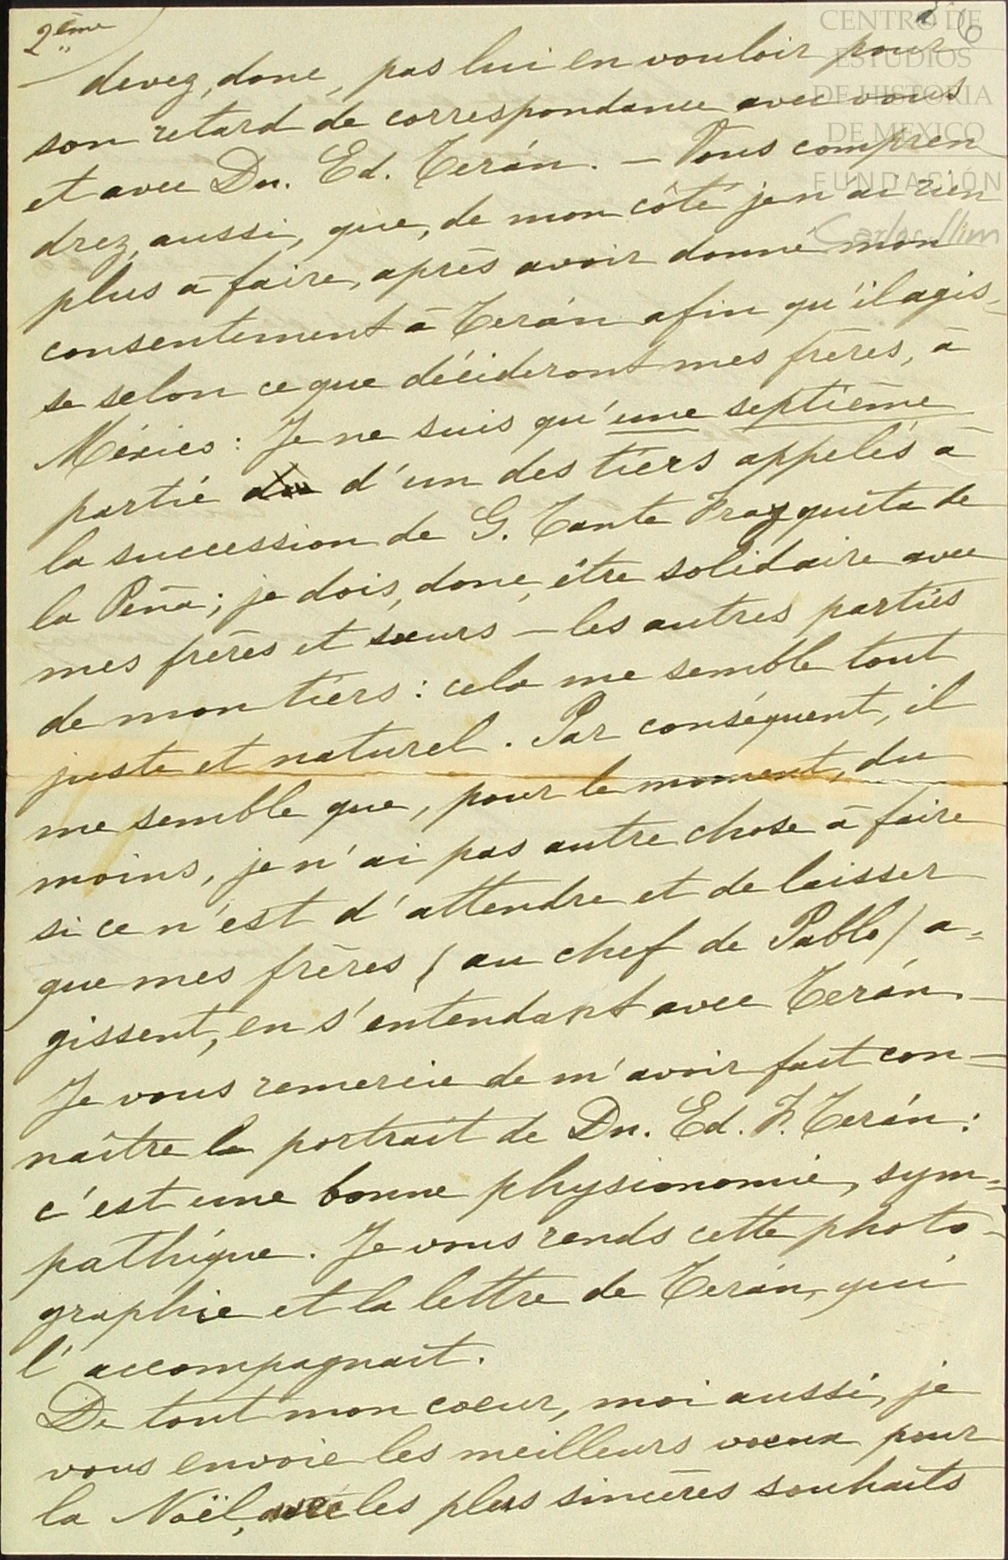 2ème
6
CENTRO DE
ESTUDIOS
DE HISTORIA
DE MEXICO
FUNDACIÓN
Carlos Slim
devez, donc, pas lui en vouloir pour
son retard de correspondance avec vous
et avec Dn. Ed. Terán. — Vous compren
drez, aussi, que, de mon côté je n'ai rien
plus à faire, après avoir donné mon
consentement à Terán afin qu'il agis=
se selon ce que décideront mes frères, à
México : Je ne suis qu'une septième
partie d'un des tiers appelés à
la succession de G. Tante Prazquita de
la Peña ; je dois, donc, être solidaire avec
mes frères et sœurs — les autres parties
de mon tiers : cela me semble tout
juste et naturel. Par conséquent, il
me semble que, pour le moment, du
moins, je n'ai pas autre chose à faire
si ce n'est d'attendre et de laisser
que mes frères (au chef de Pablo) a=
gissent, en s'entendant avec Terán. —
Je vous remercie de m'avoir fait con=
naître le portrait de Dn. Ed. F. Terán :
c'est une bonne physionomie, sym=
pathique. Je vous rends cette photo-
graphie et la lettre de Terán, qui
l'accompagnait.
De tout mon cœur, moi aussi, je
vous envoie les meilleurs vœux pour
la Noël, avec les plus sincères souhaits